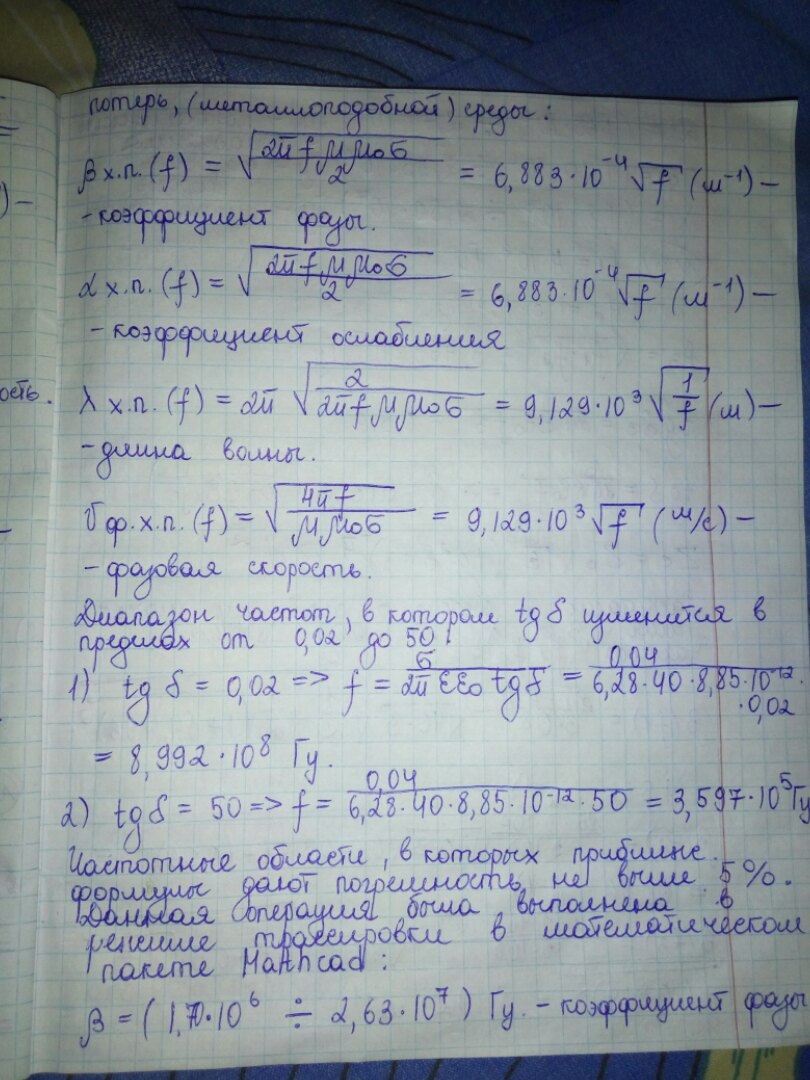 потерь, (металлоподобной) среды:
β х.п. (f) = √(2π f μ μ₀ σ / 2) = 6,883·10⁻⁴ √f (м⁻¹) –
- коэффициент фазы.
α х.п. (f) = √(2π f μ μ₀ σ / 2) = 6,883·10⁻⁴ √f (м⁻¹) –
- коэффициент ослабления
λ х.п. (f) = 2π √(2 / 2π f μ μ₀ σ) = 9,129·10³ √(1/f) (м) –
- длина волны.
υ ф.х.п. (f) = √(4π f / μ μ₀ σ) = 9,129·10³ √f (м/с) –
- фазовая скорость.
Диапазон частот, в котором tg δ изменится в
пределах от 0,02 до 50:
1) tg δ = 0,02 => f = σ / 2π ε ε₀ tg δ = 0,04 / 6,28·40·8,85·10⁻¹²·
·0,02
= 8,992·10⁸ Гц.
2) tg δ = 50 => f = 0,04 / 6,28·40·8,85·10⁻¹²·50 = 3,597·10⁵ Гц
Частотные области, в которых приближ.
формулы дают погрешность не выше 5%.
Данная операция была выполнена в
режиме трассировки в математическом
пакете Mathcad:
β = (1,70·10⁶ ÷ 2,63·10⁷) Гц. – коэффициент фазы
ость.